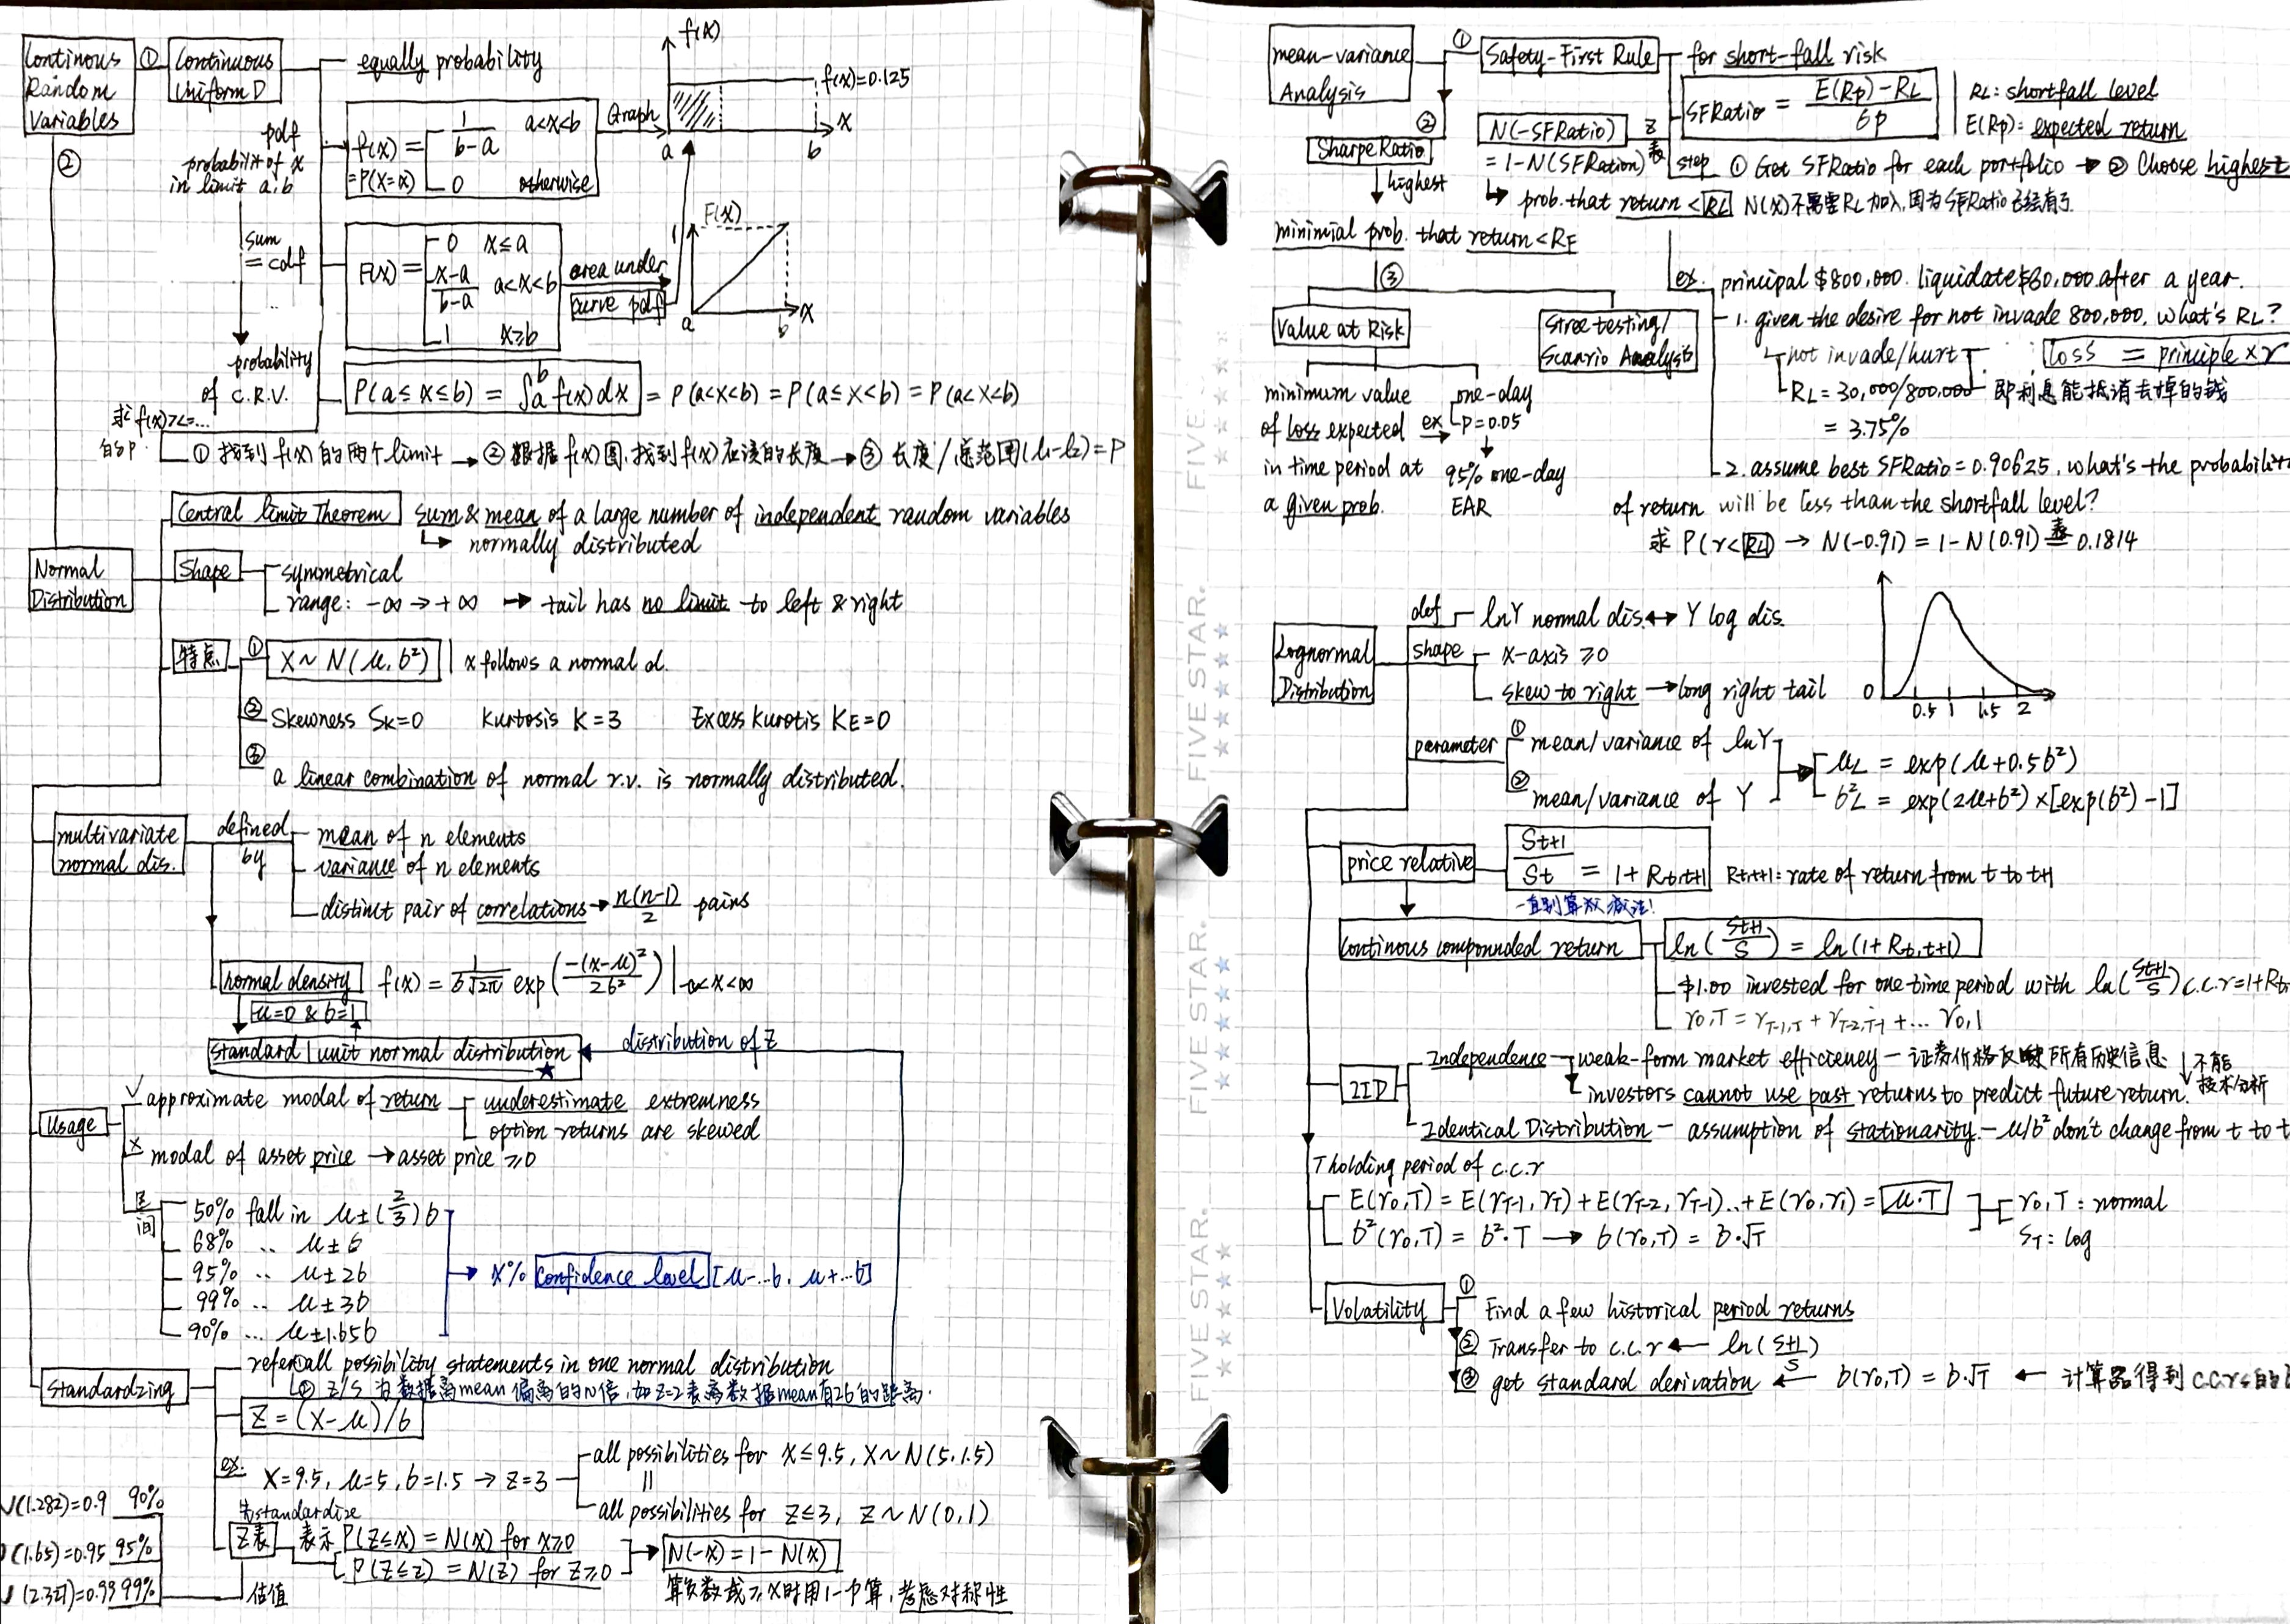 Continous
Random
Variables
①
Continuous
Uniform D
equally probability
②
pdf
probabilit of x
in limit a,b
sum
= cdf
probability
of C.R.V.
f(x) = 1/(b-a) a<x<b
=P(X=x) 0 otherwise
Graph
f(x)
f(x)=0.125
a b x
F(x) = 0 x≤a
(x-a)/(b-a) a<x<b
1 x≥b
area under
curve pdf
F(x)
1
a b x
P(a≤x≤b) = ∫ab f(x)dx = P(a<x<b) = P(a≤x<b) = P(a<x<b)
求 f(x)>L=...
的P.
① 找到 f(x) 的两个 limit → ② 根据 f(x) 图,找到 f(x) 应该的长度 → ③ 长度/总范围(l1-l2)=P
Normal
Distribution
Central limit Theorem sum & mean of a large number of independent random variables
↳ normally distributed
Shape
symmetrical
range: -∞ → +∞ → tail has no limit to left & right
特点
① X~N(μ, б²) | x follows a normal d.
② Skewness Sk=0 Kurtosis K=3 Excess Kurotis KE=0
③
a linear combination of normal r.v. is normally distributed.
multivariate
normal dis.
defined
by
mean of n elements
variance of n elements
distinct pair of correlations → n(n-1)/2 pairs
normal density f(x) = 1/(б√2π) exp(-(x-μ)²/2б²) | -∞<x<∞
μ=0 & б=1
standard | unit normal distribution
★
distribution of Z
Usage
√ approximate modal of return
underestimate extremness
option returns are skewed
× modal of asset price → asset price ≥0
区
间
50% fall in μ±(2/3)б
68% .. μ±б
95% .. μ±2б
99% .. μ±3б
90% ... μ±1.65б
→ x% confidence level [μ-...б, μ+...б]
Standardzing
① refer all possibility statements in one normal distribution
② Z/S 为数据离mean偏离的N倍,如Z=2表离数据mean有2б的距离.
Z = (x-μ)/б
ex. X=9.5, μ=5, б=1.5 → z=3
all possibilities for X≤9.5, X~N(5,1.5)
||
all possibilities for Z≤3, Z~N(0,1)
先standardize
Z表
表示 P(Z≤x) = N(x) for x≥0
P(Z≤z) = N(z) for Z≥0
N(-x) = 1 - N(x)
算负数或≥x时用1-中算,考虑对称性
(1.282)=0.9 90%
(1.65)=0.95 95%
(2.327)=0.99 99%
估值
mean-variance
Analysis
① Safety-First Rule for short-fall risk
SFRatio = (E(Rp)-RL)/бp
RL: shortfall level
E(Rp): expected return
②
Sharpe Ratio
highest
minimial prob. that return<RF
N(-SFRatio)
= 1-N(SFRation)
Z
表
step ① Get SFRatio for each portfolio → ② Choose highest
↳ prob. that return < RL N(x)不需要RL加入,因为SFRatio已经有了
③
Value at Risk
Stree testing/
Scanrio Analysis
minimum value
of loss expected
in time period at
a given prob.
ex
one-day
P=0.05
↓
95% one-day
EAR
ex. principal $800,000. liquidate $30,000 after a year.
1. given the desire for not invade 800,000, what's RL?
not invade/hurt
loss = principle × r
RL = 30,000/800,000 即利息能抵消去掉的钱
= 3.75%
2. assume best SFRatio=0.90625, what's the probabilit
of return will be less than the shortfall level?
求 P(r<RL) → N(-0.91) = 1-N(0.91) 表= 0.1814
Lognormal
Distribution
def lnY normal dis. ↔ Y log dis.
shape x-axis ≥0
skew to right → long right tail
0 0.5 1 1.5 2
parameter
① mean/variance of lnY
② mean/variance of Y
μL = exp(μ+0.5б²)
б²L = exp(2μ+б²)×[exp(б²)-1]
price relative
St+1/St = 1+Rt,t+1 Rt,t+1: rate of return from t to t+1
Continous compounded return ln(St+1/S) = ln(1+Rt,t+1)
$1.00 invested for one time period with ln(St+1/S) c.c.r=1+Rt,
r0,T = rT-1,T + rT-2,T-1 + ... r0,1
IID
Independence
weak-form market efficiency - 证券价格反映所有历史信息
investors cannot use past returns to predict future return.
↓ 不能
技术分析
Identical Distribution - assumption of stationarity - μ/б² don't change from t to t
T holding period of c.c.r
E(r0,T) = E(rT-1,rT) + E(rT-2,rT-1)..+E(r0,r1) = μ·T
б²(r0,T) = б²·T → б(r0,T) = б·√T
r0,T : normal
ST: log
Volatility
① Find a few historical period returns
② Transfer to c.c.r ← ln(St+1/S)
③ get standard derivation ← б(r0,T) = б·√T ← 计算器得到 c.c.rs的
FIVE STAR.
FIVE STAR.
FIVE STAR.
FIVE STAR.